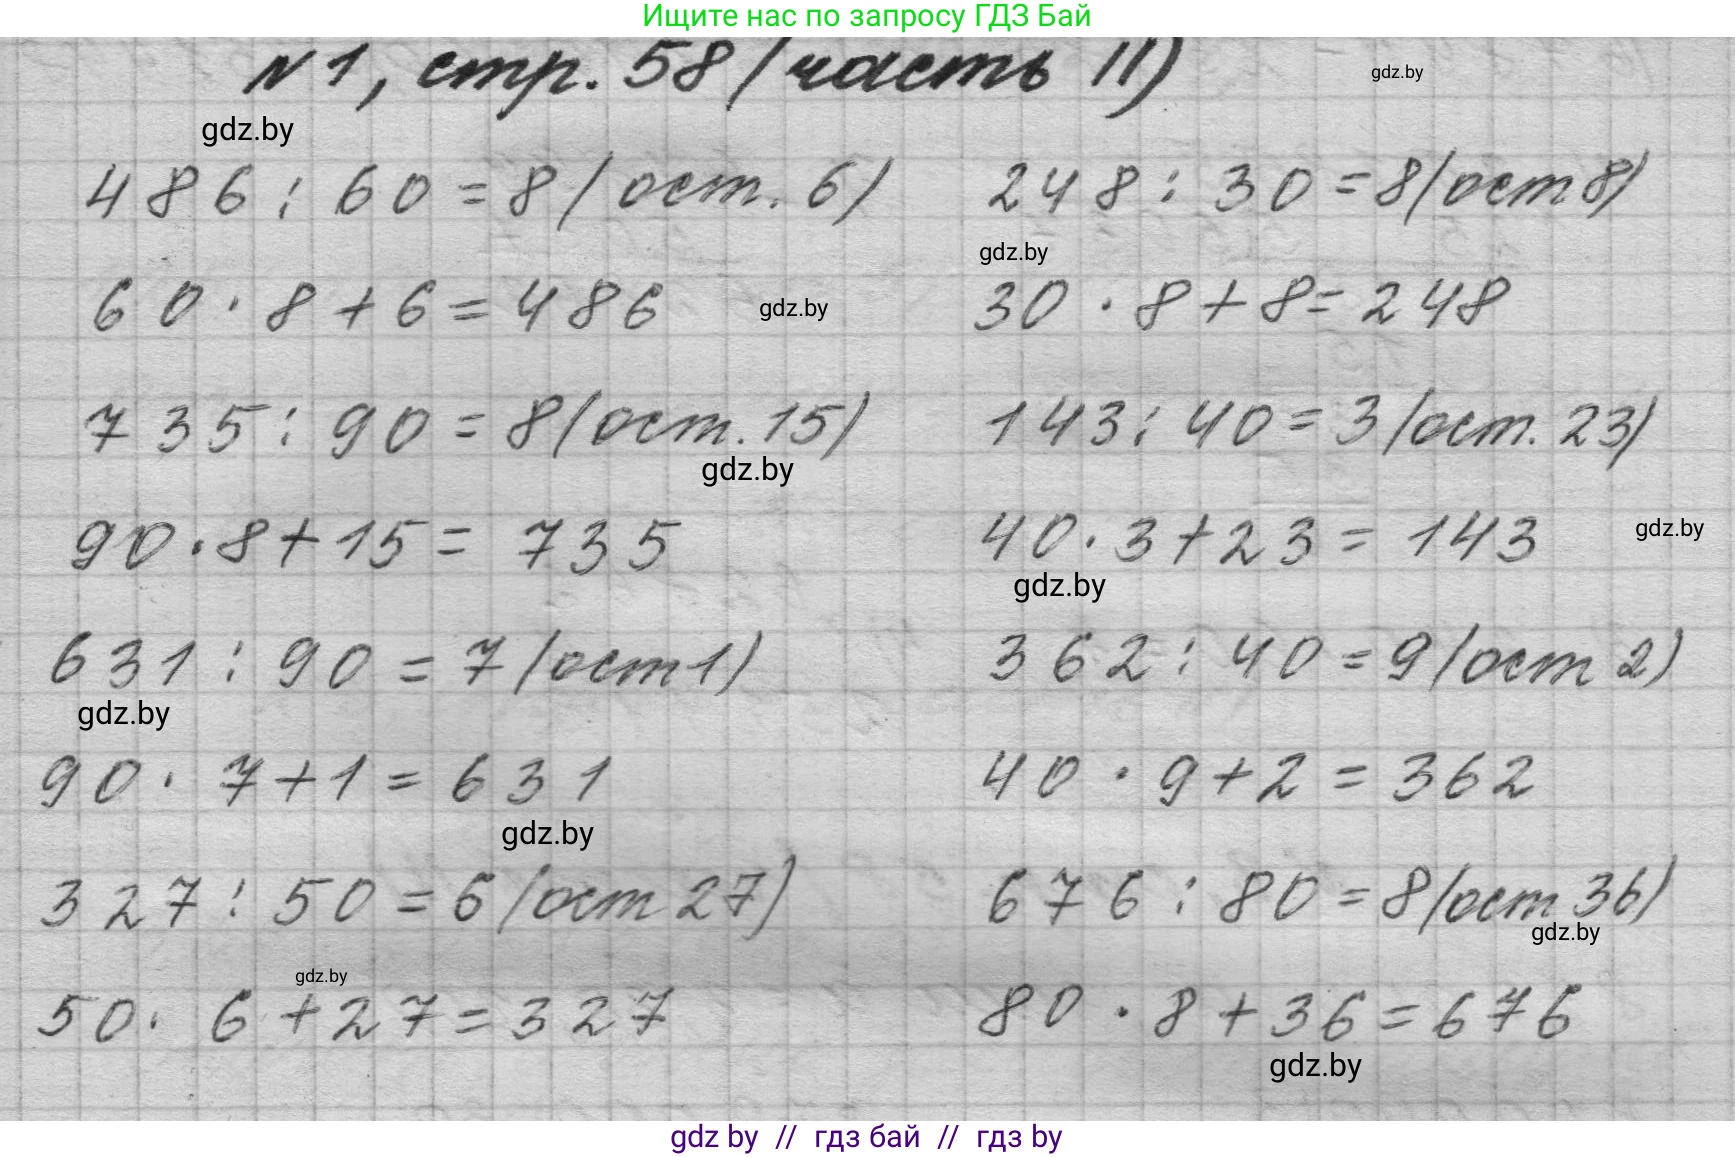 Ищите нас по запросу ГДЗ Бай
№1, стр. 58 (часть II)
gdz.by
gdz.by
486 : 60 = 8 (ост. 6) 248 : 30 = 8 (ост 8)
gdz.by
60 · 8 + 6 = 486 gdz.by 30 · 8 + 8 = 248
735 : 90 = 8 (ост. 15) 143 : 40 = 3 (ост. 23)
gdz.by
90 · 8 + 15 = 735 40 · 3 + 23 = 143 gdz.by
gdz.by
631 : 90 = 7 (ост 1) 362 : 40 = 9 (ост 2)
gdz.by
90 · 7 + 1 = 631 40 · 9 + 2 = 362
gdz.by
327 : 50 = 6 (ост 27) 676 : 80 = 8 (ост 36)
gdz.by
gdz.by
50 · 6 + 27 = 327 80 · 8 + 36 = 676
gdz.by
gdz by // гдз бай // гдз by